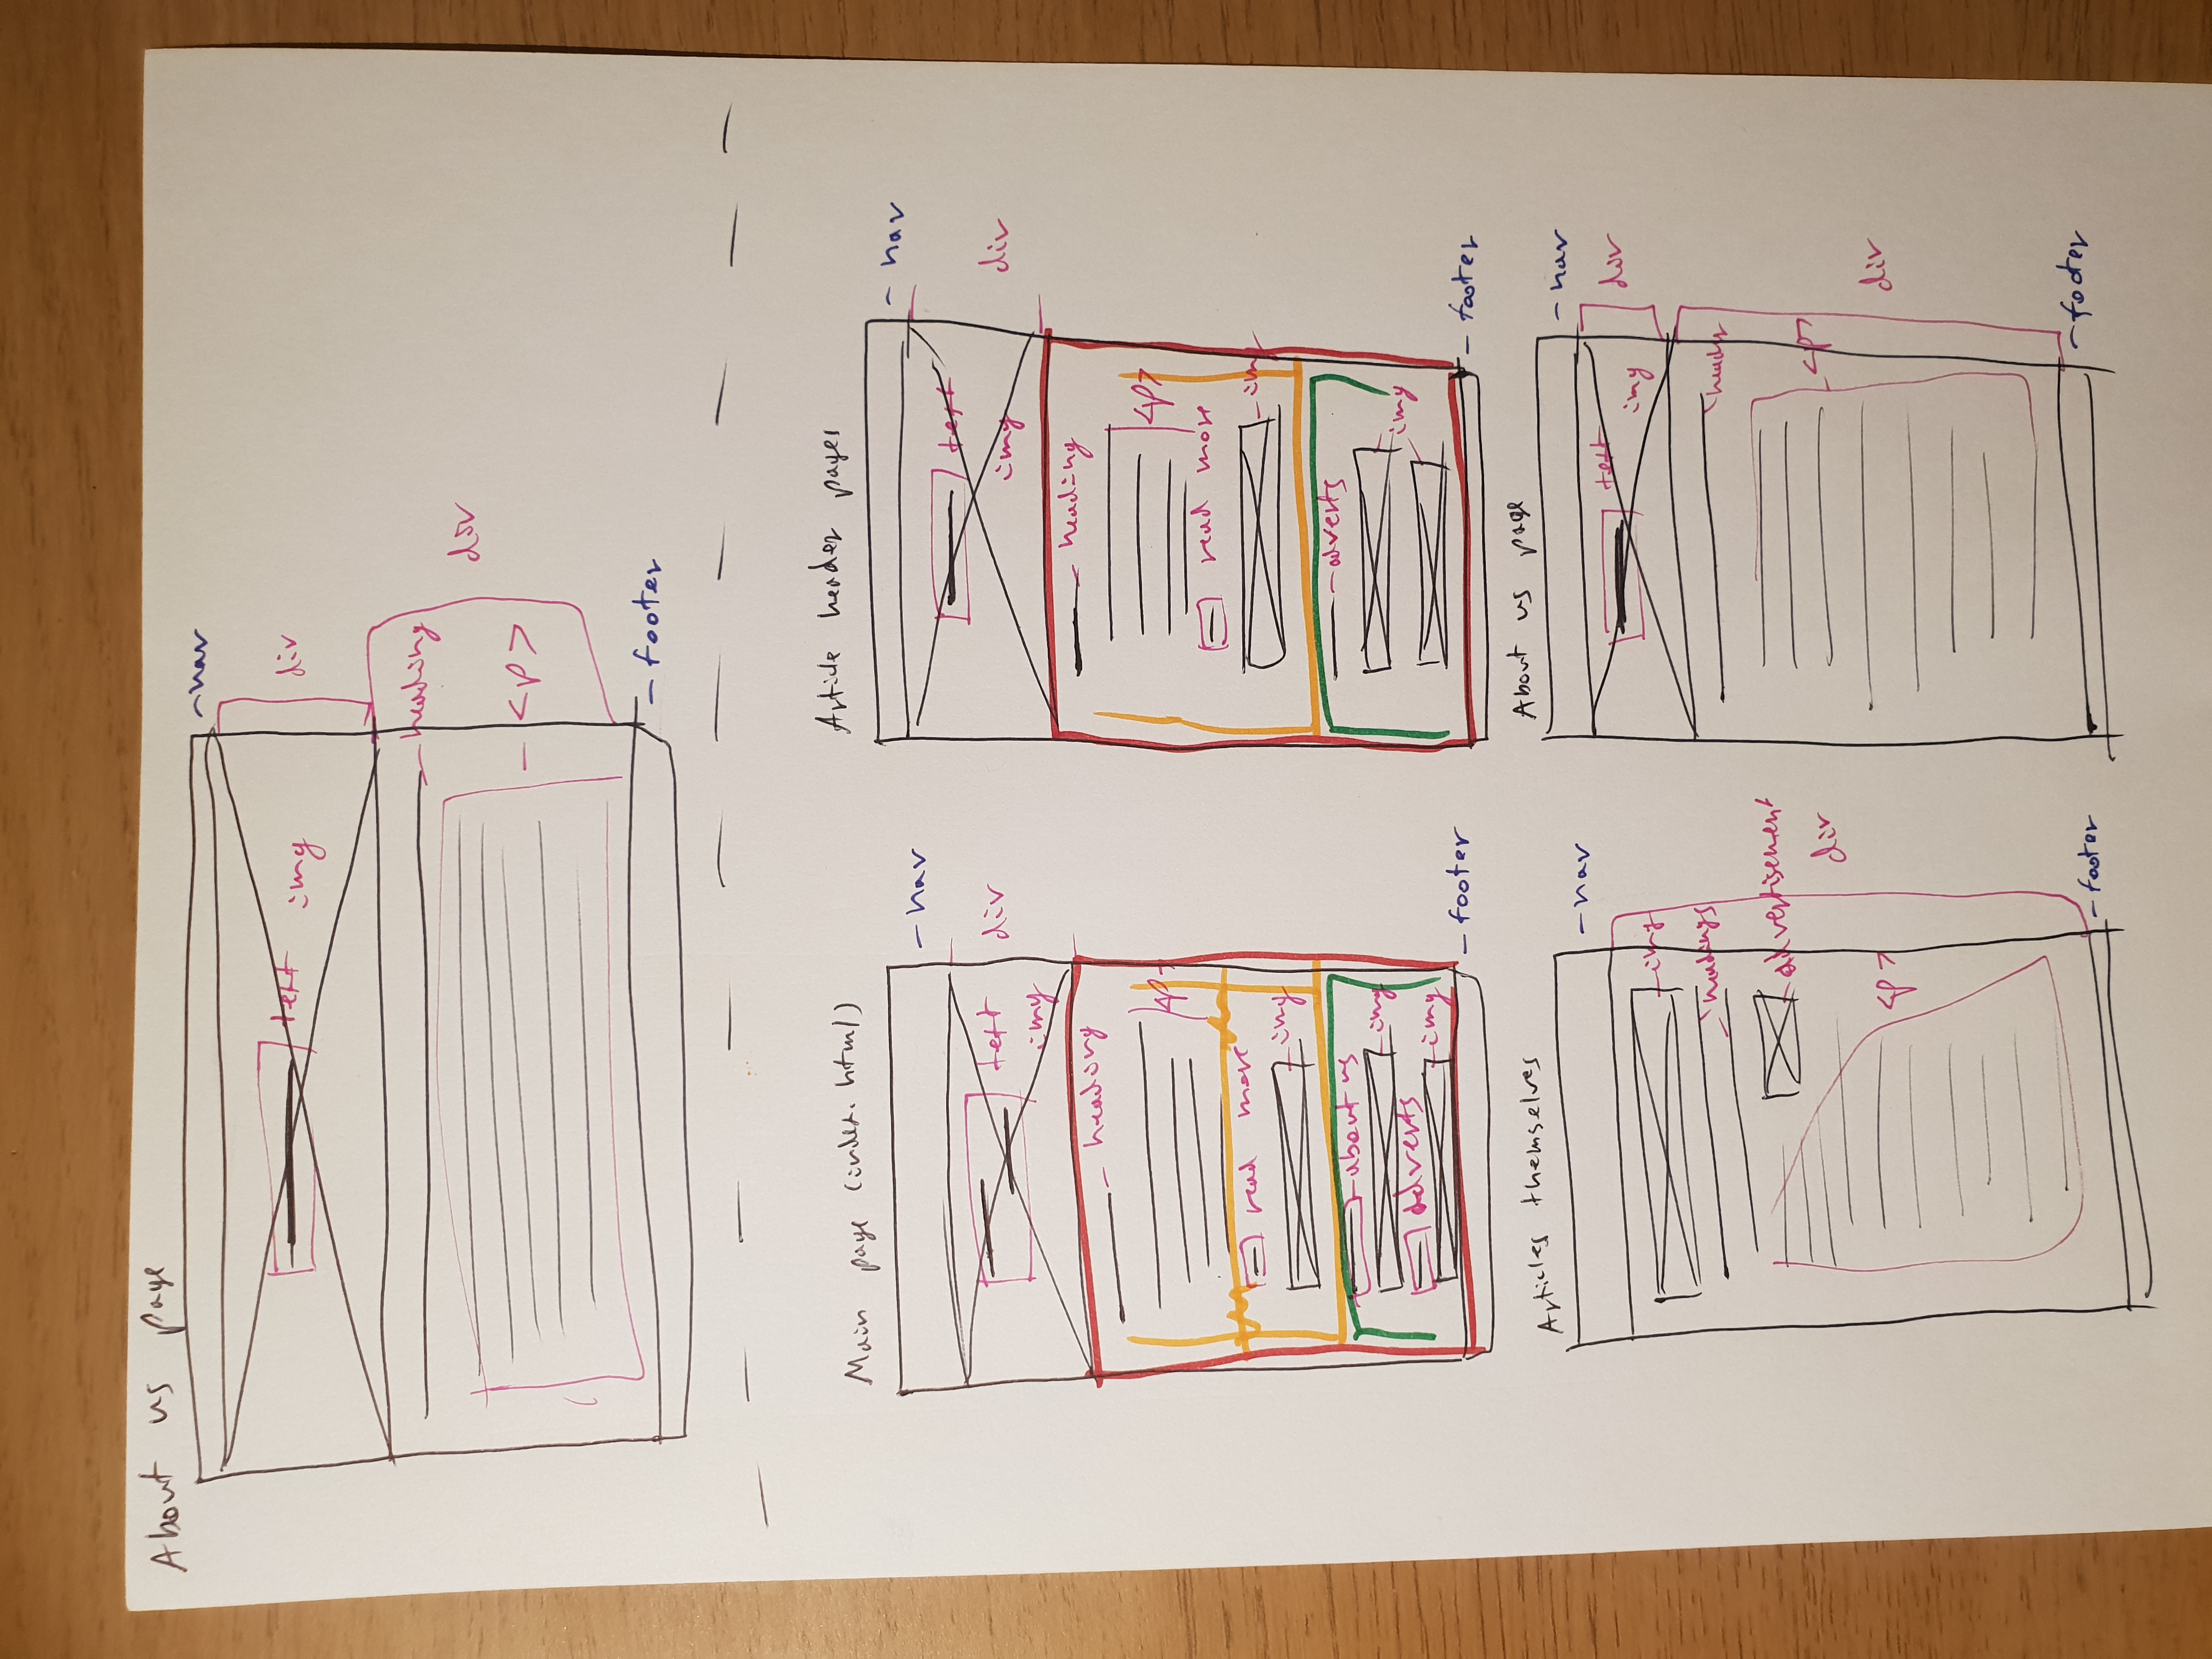 About us page
- nav
text
img
div
- heading
div
- <p>
- footer
Main page (index.html)
- nav
text
img
div
- heading
<p>
read more
- img
- about us
- img
adverts
- img
- footer
Article header pages
- nav
text
img
div
heading
<p>
read more
- img
- adverts
img
- footer
Articles themselves
- nav
- img
headings
advertisement
div
<p>
- footer
About us page
- nav
text
img
div
header
<p>
div
- footer